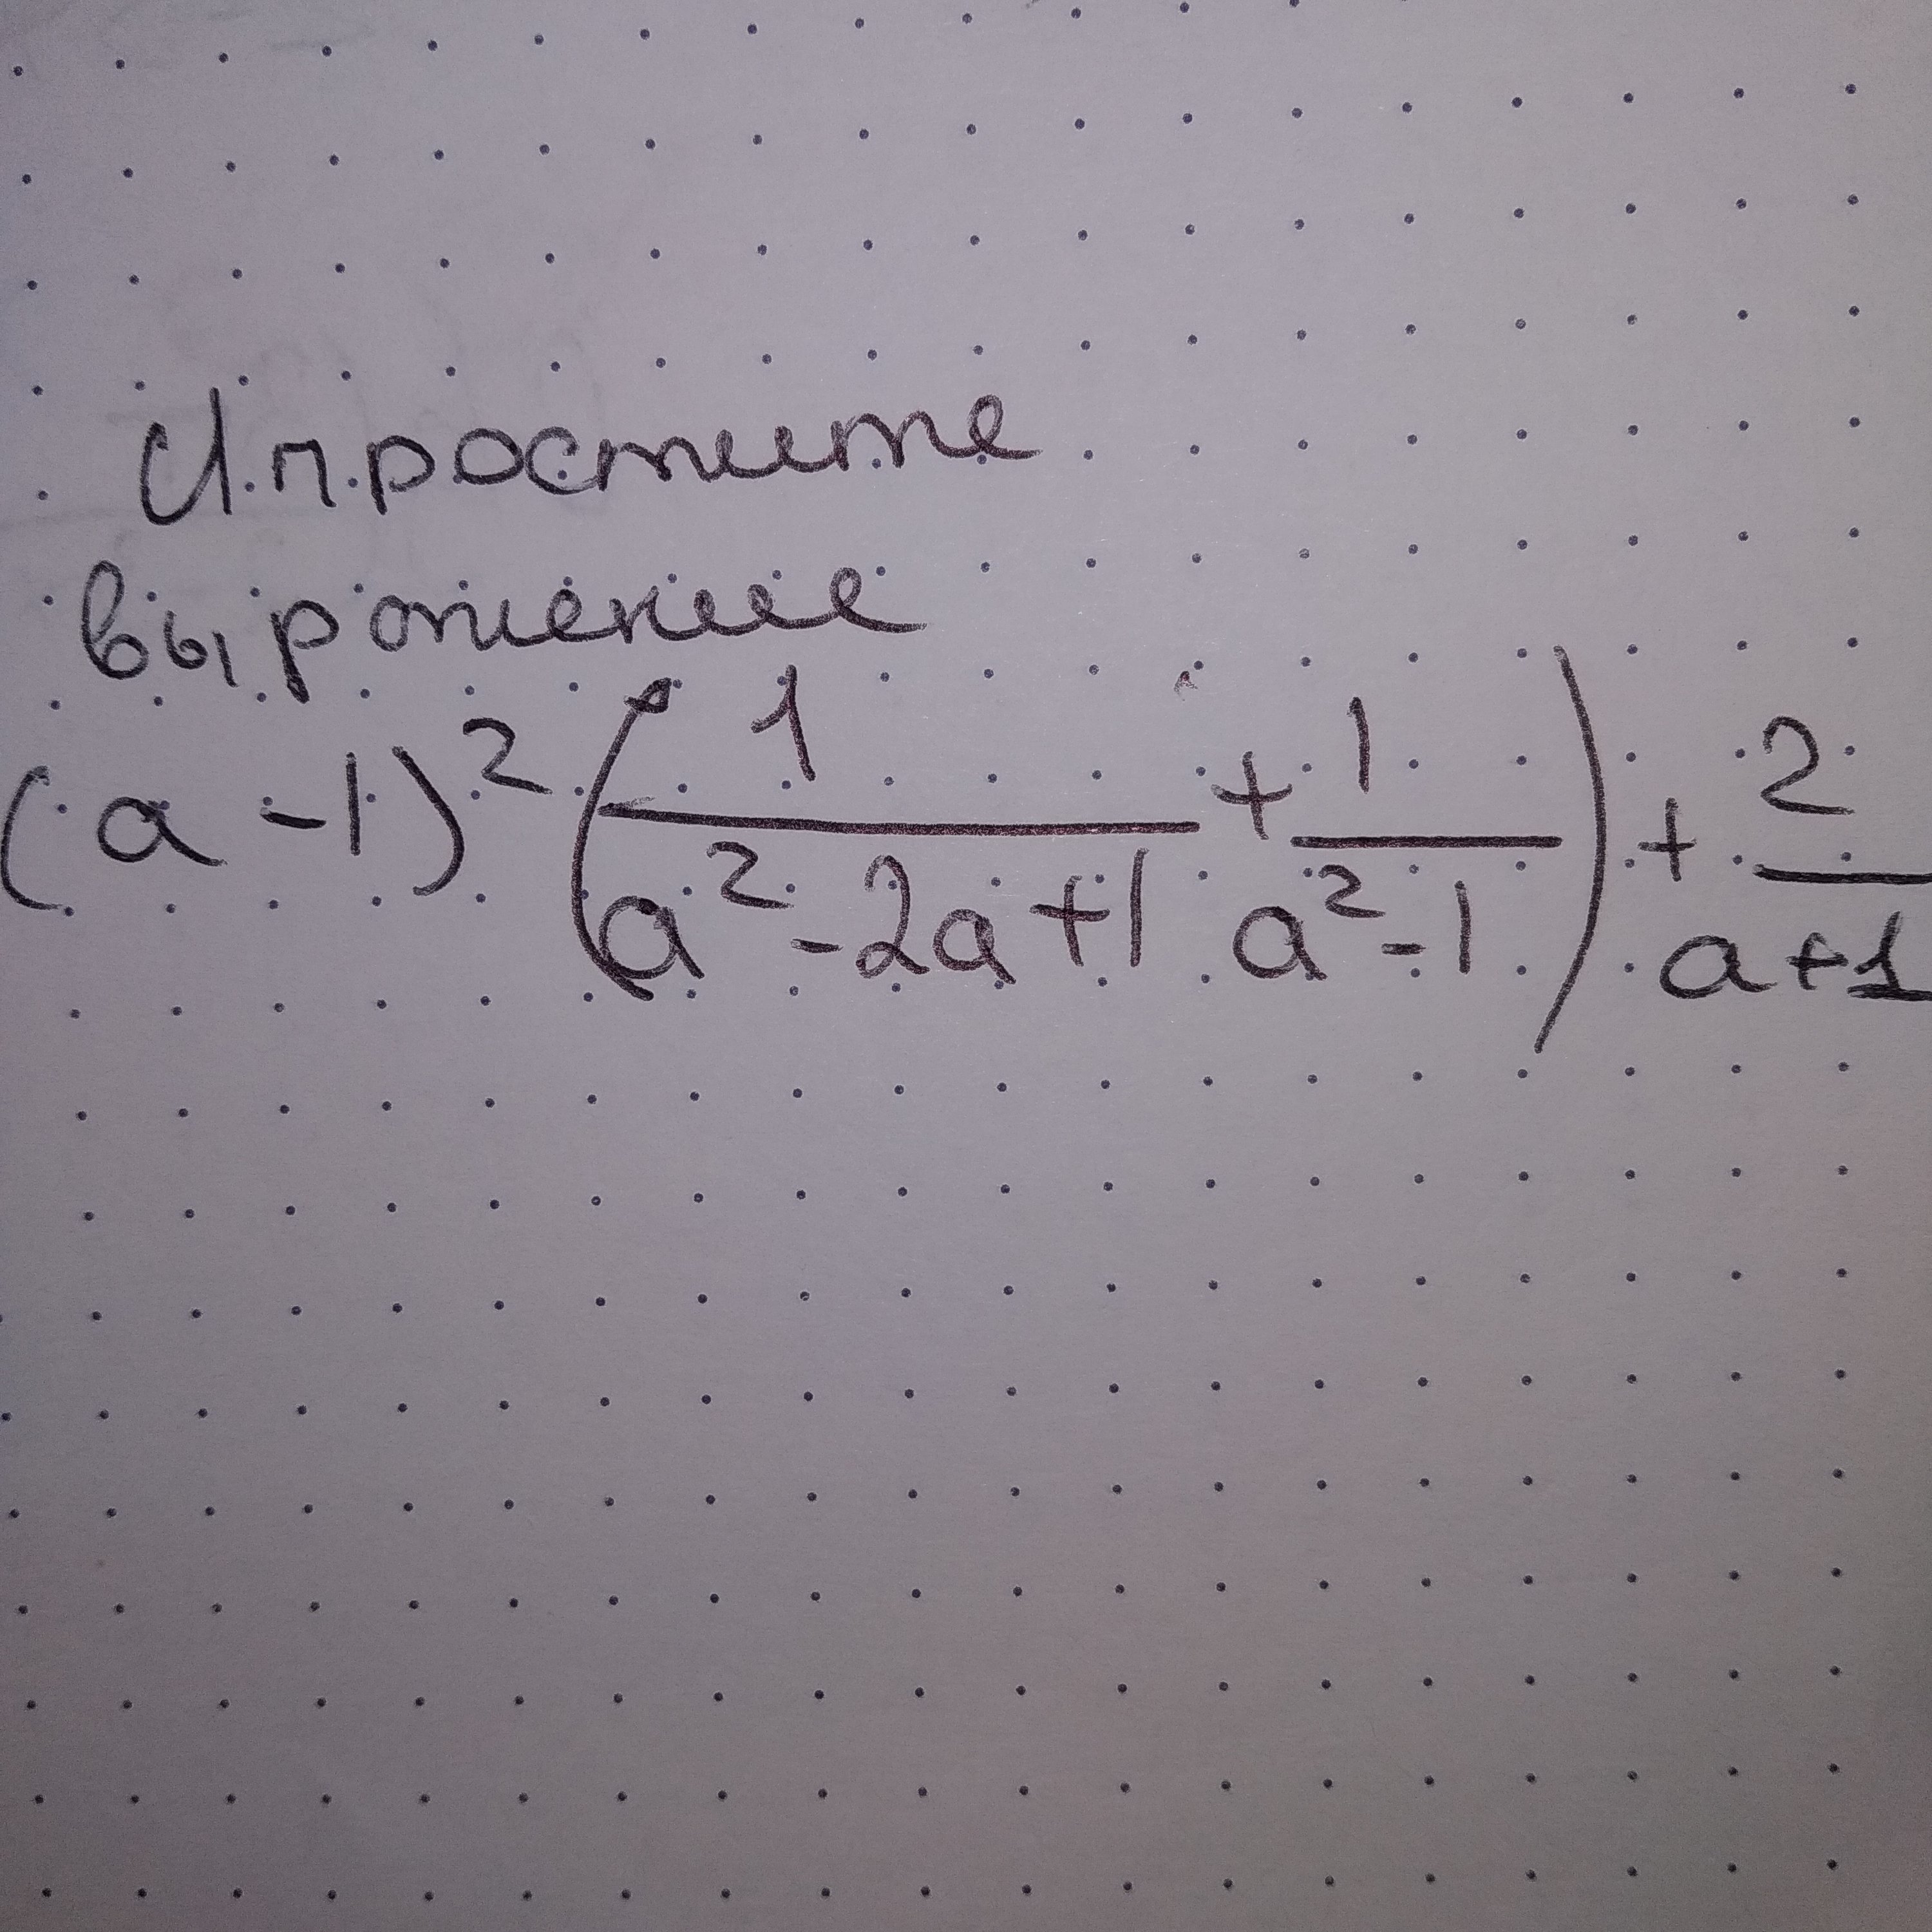 Упростите
выражение
(a-1)² (1/(a²-2a+1) + 1/(a²-1)) + 2/(a+1)